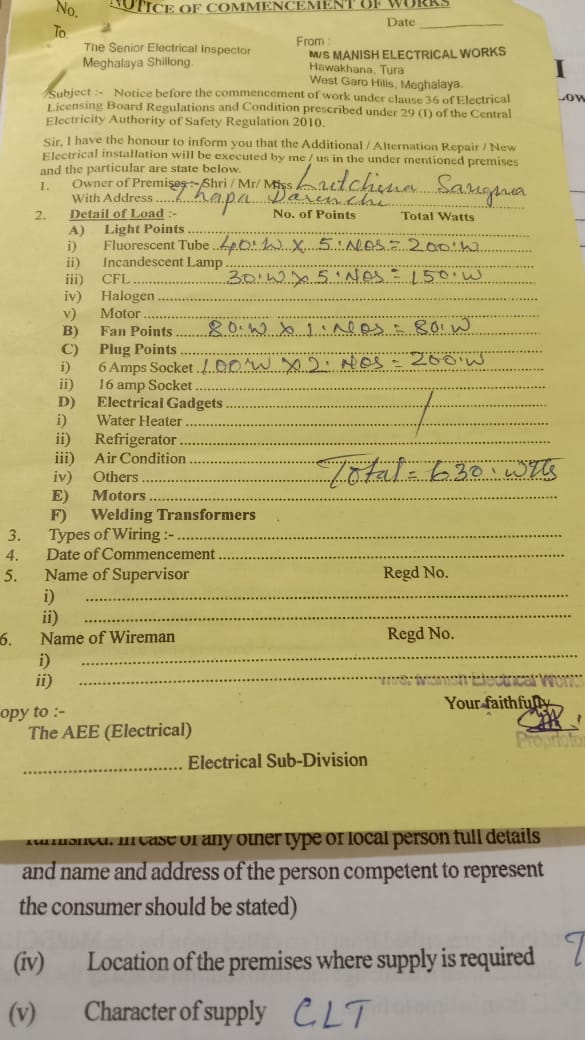 No. NOTICE OF COMMENCEMENT OF WORKS
Date
To
The Senior Electrical Inspector
Meghalaya Shillong.
From :
M/S MANISH ELECTRICAL WORKS
Hawakhana, Tura
West Garo Hills, Meghalaya.
Subject :- Notice before the commencement of work under clause 36 of Electrical
Licensing Board Regulations and Condition prescribed under 29 (1) of the Central
Electricity Authority of Safety Regulation 2010.
Sir, I have the honour to inform you that the Additional / Alternation Repair / New
Electrical installation will be executed by me / us in the under mentioned premises
and the particular are state below.
1. Owner of Premises :- Shri / Mr/ Miss Lutchina Sangma
With Address Thapa Darenchi
2. Detail of Load :- No. of Points Total Watts
A) Light Points
i) Fluorescent Tube 40.W X 5.NOS = 200.W
ii) Incandescent Lamp
iii) CFL 30.W X 5.NOS = 150.W
iv) Halogen
v) Motor
B) Fan Points 80.W X 1.NOS = 80.W
C) Plug Points
i) 6 Amps Socket 100W X 2.NOS = 200.W
ii) 16 amp Socket
D) Electrical Gadgets
i) Water Heater
ii) Refrigerator
iii) Air Condition
iv) Others Total = 630.Wtts
E) Motors
F) Welding Transformers
3. Types of Wiring :-
4. Date of Commencement
5. Name of Supervisor Regd No.
i)
ii)
6. Name of Wireman Regd No.
i)
ii)
M/s. Manish Electrical Works
Your faithfully
opy to :-
The AEE (Electrical)
Proprietor
Electrical Sub-Division
furnished. In case of any other type of local person full details
and name and address of the person competent to represent
the consumer should be stated)
(iv) Location of the premises where supply is required T
(v) Character of supply CLT